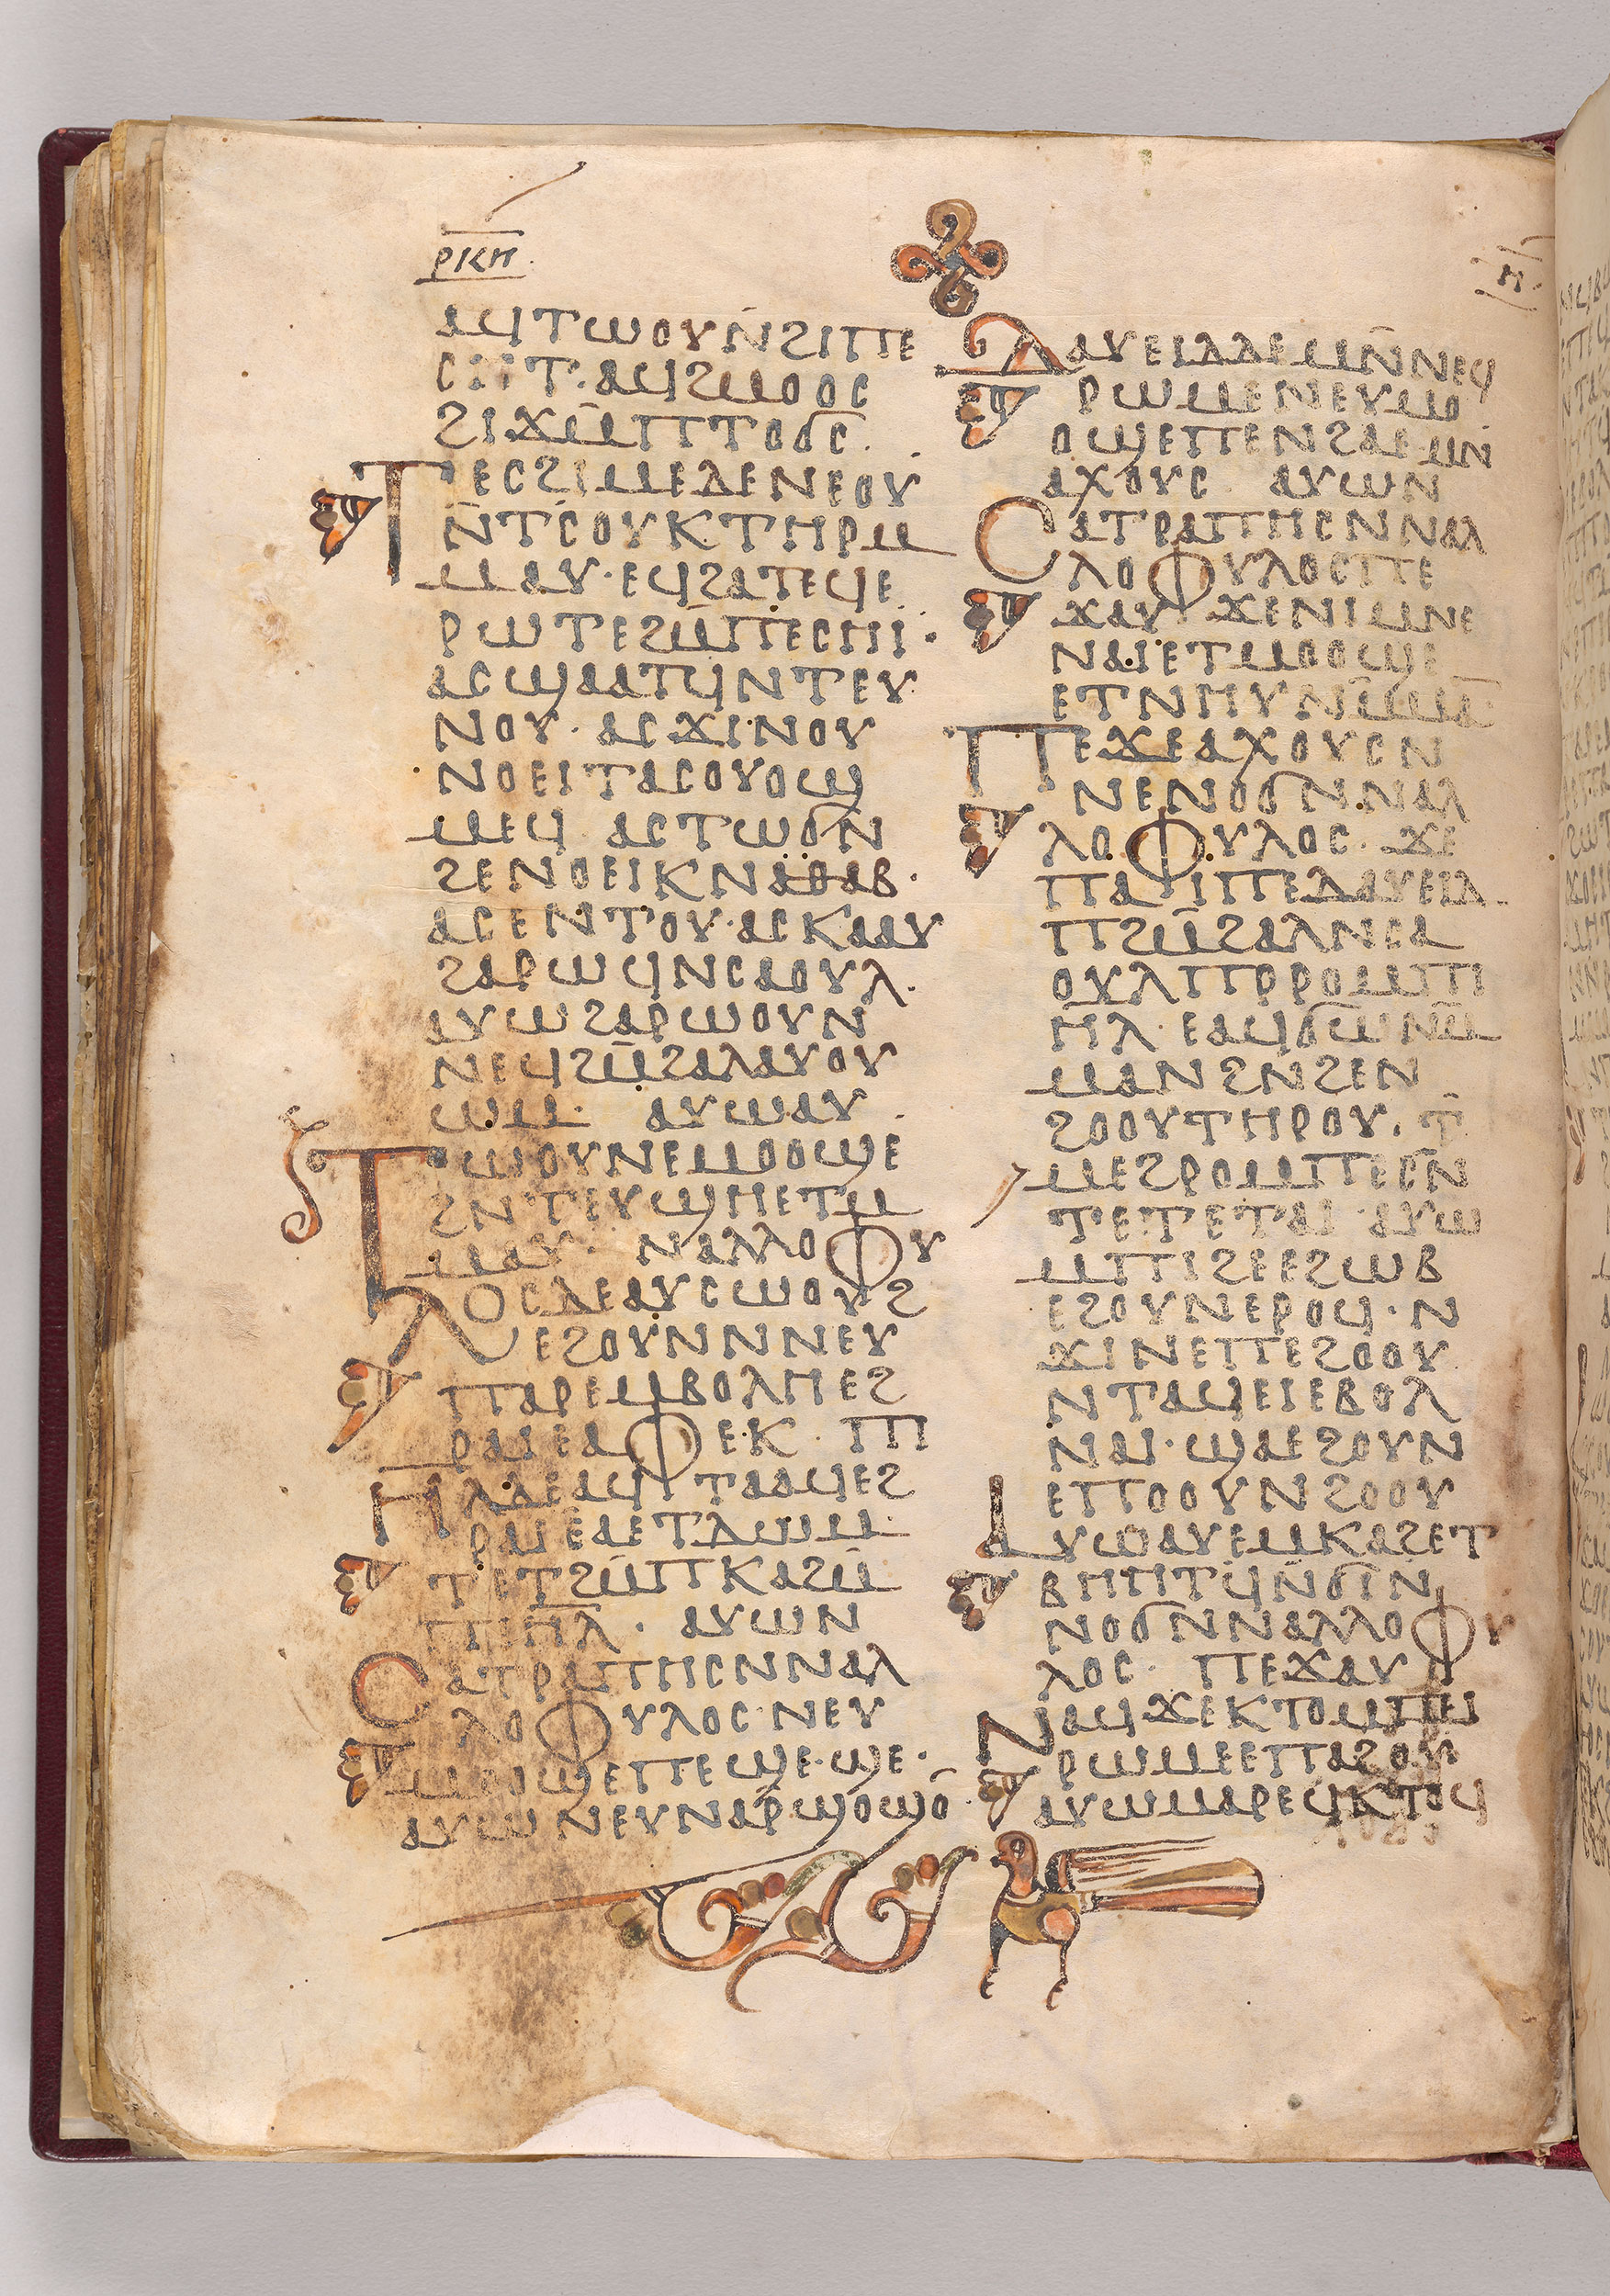 ⲣⲕⲏ
ⲏ
ⲁϥⲧⲱⲟⲩⲛ̄ϩⲓⲡⲉ
ⲥⲏⲧ·ⲁϥϩⲙⲟⲟⲥ
ϩⲓϫⲙ̄ⲡⲧⲟϭⲥ·
ⲧⲉⲥϩⲓⲙⲉⲇⲉⲛⲉⲟⲩ
ⲛ̄ⲧⲥⲟⲩⲕⲧⲏⲣⲙ
ⲙⲁⲩ·ⲉϥϩⲁⲧⲉϥⲉ
ⲣⲱⲧⲉϩⲙ̄ⲡⲉⲥⲏⲓ·
ⲁⲥϣⲁⲁⲧϥⲛⲧⲉⲩ
ⲛⲟⲩ·ⲁⲥϫⲓⲛⲟⲩ
ⲛⲟⲉⲓⲧⲁⲥⲟⲩⲟϣ
ⲙⲉϥ ⲁⲥⲧⲱϭⲛ
ϩⲉⲛⲟⲉⲓⲕⲛⲁⲑⲁⲃ·
ⲁⲥⲉⲛⲧⲟⲩ·ⲁⲥⲕⲁⲁⲩ
ϩⲁⲣⲱϥⲛⲥⲁⲟⲩⲗ·
ⲁⲩⲱϩⲁⲣⲱⲟⲩⲛ
ⲛⲉϥϩⲙ̄ϩⲁⲗⲁⲩⲟⲩ
ⲱⲙ· ⲁⲩⲱⲁⲩ
ⲧⲱⲟⲩⲛⲉⲙⲟⲟϣⲉ
ϩⲛⲧⲉⲩϣⲏⲉⲧⲙ
ⲙⲁⲩ· ⲛⲁⲗⲗⲟⲫⲩ
ⲗⲟⲥⲇⲉⲁⲩⲥⲱⲟⲩϩ
ⲉϩⲟⲩⲛⲛⲛⲉⲩ
ⲡⲁⲣⲉⲙⲃⲟⲗⲏⲉϩ
ⲣⲁⲓⲉⲁⲫⲉⲕ· ⲡⲓ
ⲏⲗⲇⲉⲁϥⲧⲁⲁϥⲉϩ
ⲣⲁⲓⲉⲁⲉⲧⲇⲱⲙ·
ⲧⲉⲧϩⲙ̄ⲡⲕⲁϩⲙ̄
ⲡⲓⲏⲗ· ⲁⲩⲱⲛ
ⲥⲁⲧⲣⲁⲡⲏⲥⲛⲛⲁⲗ
ⲗⲟⲫⲩⲗⲟⲥ·ⲛⲉⲩ
ⲙⲟⲟϣⲉⲡⲉϣⲉ·ϣⲉ·
ⲁⲩⲱⲛⲉⲩⲛⲁⲣ̄ϣⲟ̄ϣⲟ̄
ⲇⲁⲩⲉⲓⲇⲇⲉⲙⲛ̄ⲛⲉϥ
ⲣⲱⲙⲉⲛⲉⲩⲙⲟ
ⲟϣⲉⲡⲉⲛϩⲁⲉ·ⲙⲛ̄
ⲁⲭⲟⲩⲥ ⲁⲩⲱⲛ
ⲥⲁⲧⲣⲁⲡⲏⲥⲛⲛⲁⲗ
ⲗⲟⲫⲩⲗⲟⲥⲡⲉ
ϫⲁⲩ ϫⲉⲛⲓⲙⲛⲉ
ⲛⲁⲓⲉⲧⲙⲟⲟϣⲉ
ⲉⲧⲛⲏⲩⲛⲙ̄ⲙⲁ̄·
ⲡⲉϫⲉⲁⲭⲟⲩⲥⲛ
ⲛⲉⲛⲟϭⲛⲛⲁⲗ
ⲗⲟⲫⲩⲗⲟⲥ·ϫⲉ
ⲡⲁⲓⲡⲉⲇⲁⲩⲉⲓⲇ
ⲡϩⲙ̄ϩⲁⲗⲛⲥⲁ
ⲟⲩⲗⲡⲣⲣⲟⲙⲡⲓ
ⲏ̄ⲗ·ⲉⲁϥϭⲱⲛⲙ̄
ⲙⲁⲛϩⲛϩⲉⲛ
ϩⲟⲟⲩⲧⲏⲣⲟⲩ·ⲧ̄
ⲙⲉϩⲣⲟⲙⲡⲉⲥ̄ⲛ
ⲧⲉⲧⲉⲧⲁⲓ·ⲁⲩⲱ
ⲙⲡⲓϩⲉⲉϩⲱⲃ
ⲉϩⲟⲩⲛⲉⲣⲟϥ·ⲛ
ϫⲓⲛⲉⲡⲉϩⲟⲟⲩ
ⲛⲧⲁϥⲉⲓⲉⲃⲟⲗ
ⲛⲁⲓ·ϣⲁⲉϩⲟⲩⲛ
ⲉⲡⲟⲟⲩⲛϩⲟⲟⲩ
ⲁⲩⲱⲁⲩⲉⲙⲕⲁϩⲉⲧ
ⲃⲏⲏⲧϥⲛ̄ϭⲓⲛ
ⲛⲟϭⲛⲛⲁⲗⲗⲟⲫⲩ
ⲗⲟⲥ· ⲡⲉϫⲁⲩ
ⲛⲁϥϫⲉⲕⲧⲟⲙⲡⲉⲓ
ⲣⲱⲙⲉⲉⲡⲁϩⲟⲩ
ⲁⲩⲱⲙⲁⲣⲉϥⲕⲧⲟϥ